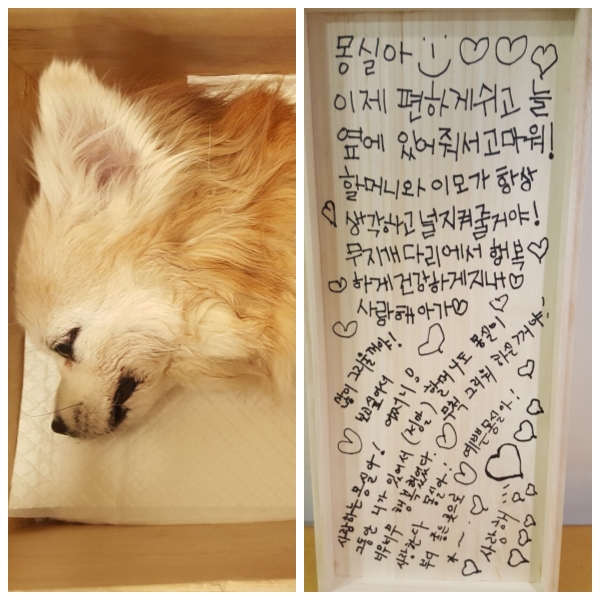 몽실아
이제 편하게쉬고 늘
옆에 있어줘서고마워!
할머니와 이모가 항상
생각하고널지켜줄거야!
무지개다리에서 행복
하게건강하게지내
사랑해아가
많이 그리울꺼야!
보고싶어서
어쩌니
(정말) 할매 나도 몽실이
무척 그리워 하실거야
예쁜몽실아!
사랑하는 몽실아!
그동안 니가 있어서
너무너무 행복했었다
사랑한다 몽실아!
부디 좋은곳으로
사랑해